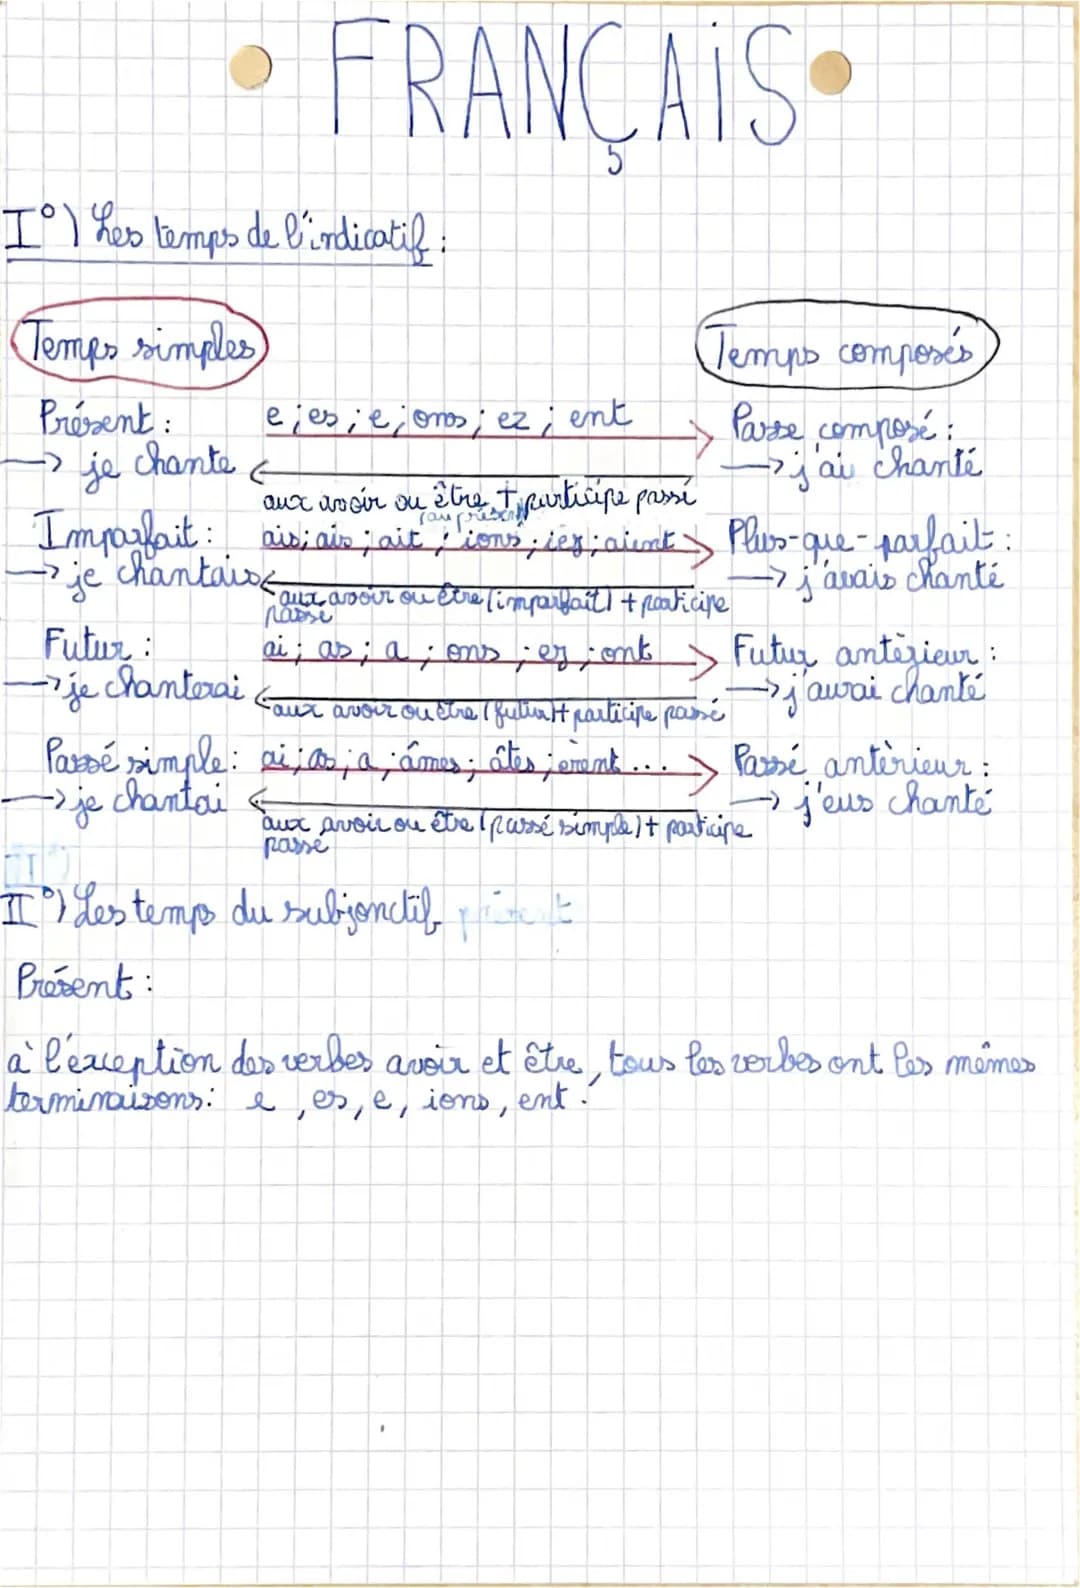 FRANÇAIS
I°) Les temps de l'indicatif :
Temps simples
Temps composés
Présent :
e ; es ; e ; ons ; ez ; ent
Passe composé :
→ je chante
→ j'ai chanté
aux avoir ou être + participe passé
(au présent)
Imparfait :
ais ; ais ; ait ; ions ; iez ; aient
Plus-que-parfait :
→ je chantais
→ j'avais chanté
aux avoir ou être (imparfait) + participe
passé
Futur :
ai ; as ; a ; ons ; ez ; ont
Futur antèrieur :
→ je chanterai
→ j'aurai chanté
aux avoir ou être (futur)+ participe passé
Passé simple :
ai ; as ; a ; âmes ; âtes ; èrent ...
Passé antèrieur :
→ je chantai
→ j'eus chanté
aux avoir ou être (passé simple) + participe
passé
II°) Les temps du subjonctif présent
Présent :
à l'éxception des verbes avoir et être, tous les verbes ont les mêmes
terminaisons : e , es, e, ions, ent .